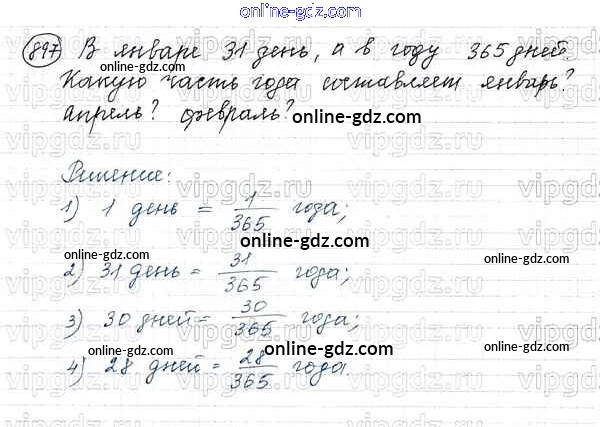 online-gdz.com
897) В январе 31 день, а в году 365 дней.
Какую часть года составляет январь?
апрель? февраль?
online-gdz.com
vipgdz.ru vipgdz.ru vipgdz.ru
Решение:
1) 1 день = 1/365 года;
online-gdz.com
online-gdz.com
2) 31 день = 31/365 года;
online-gdz.com
3) 30 дней = 30/365 года;
online-gdz.com
online-gdz.com
4) 28 дней = 28/365 года.